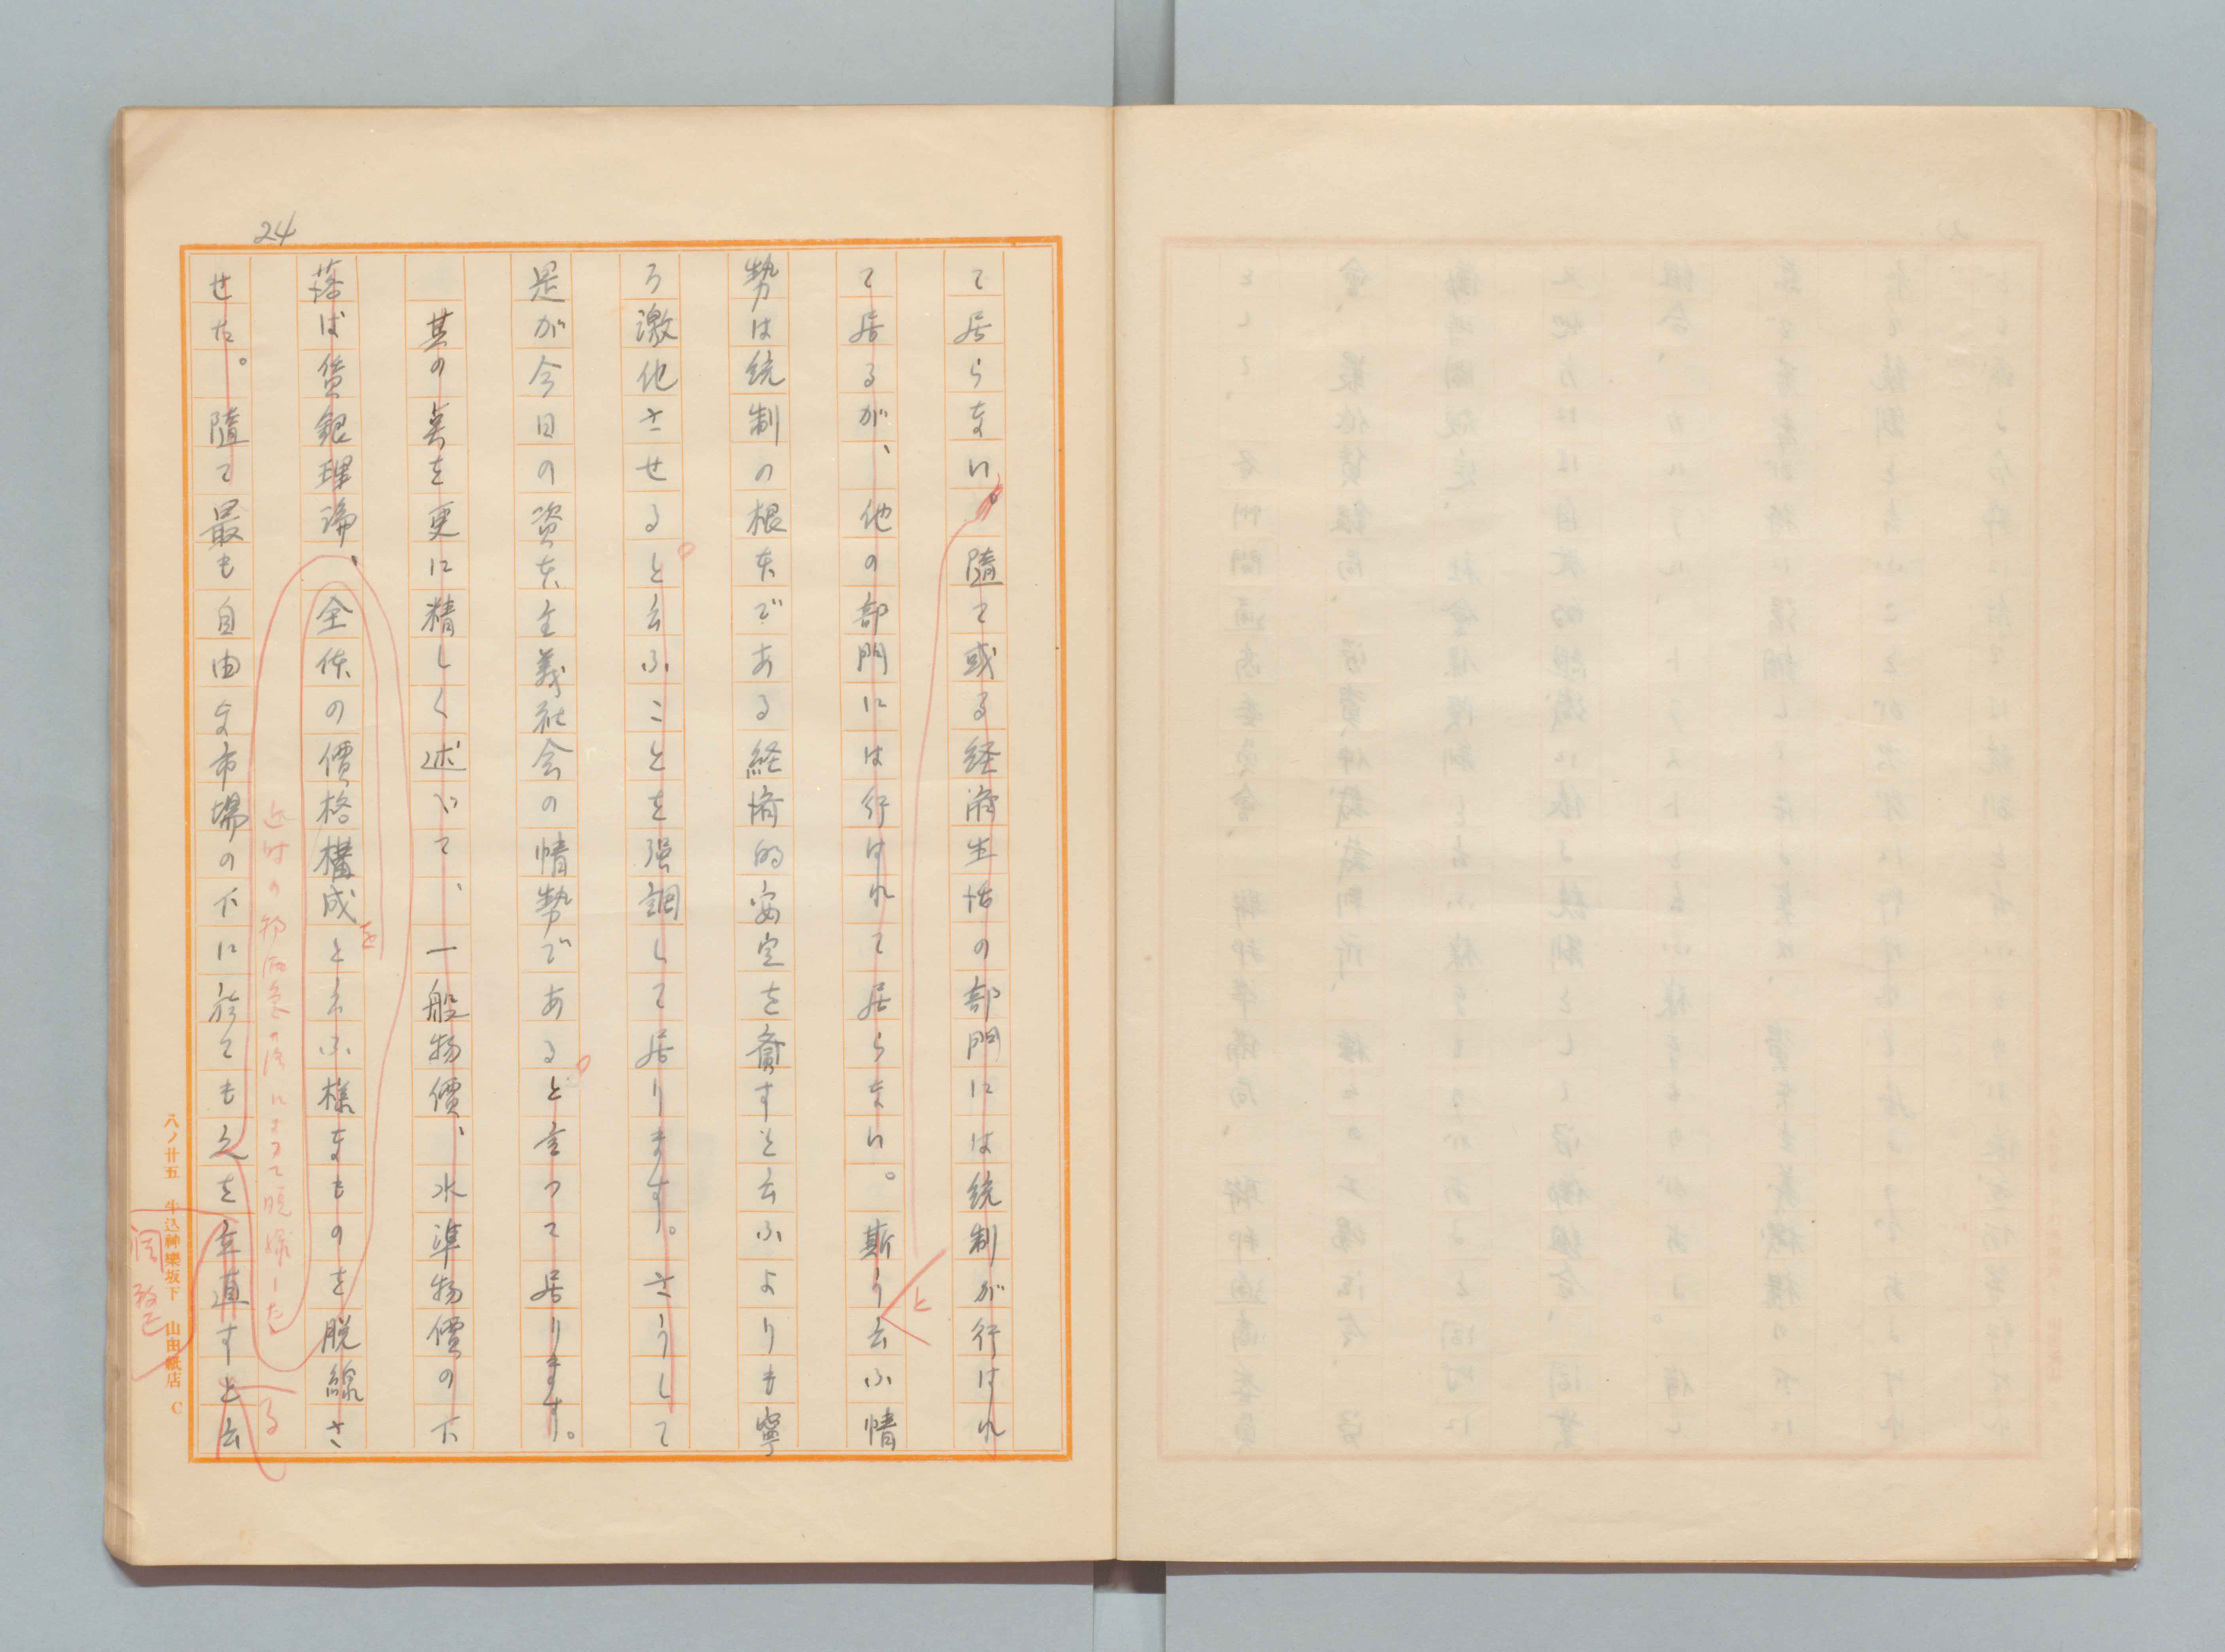 24
て居らない。隨て或る経済生活の部門には統制が行はれ
て居るが、他の部門には行はれて居らない。斯う云ふ情
と
勢は統制の根本である経済的安定を齎すと云ふよりも寧
ろ激化させると云ふことを强調して居ります。さうして
是が今日の資本主義社会の情勢であると言つて居ります。
其の実を更に精しく述べて、一般物價、水準物價の下
落ば賃銀理論、全体の價格構成と云ふ様なものを脱線さ
を
近時の物価の落によつて脱線した
せた。隨て最も自由な市場の下に於ても之を立直すと云
る
八ノ廿五 牛込神樂坂下 山田紙店 C